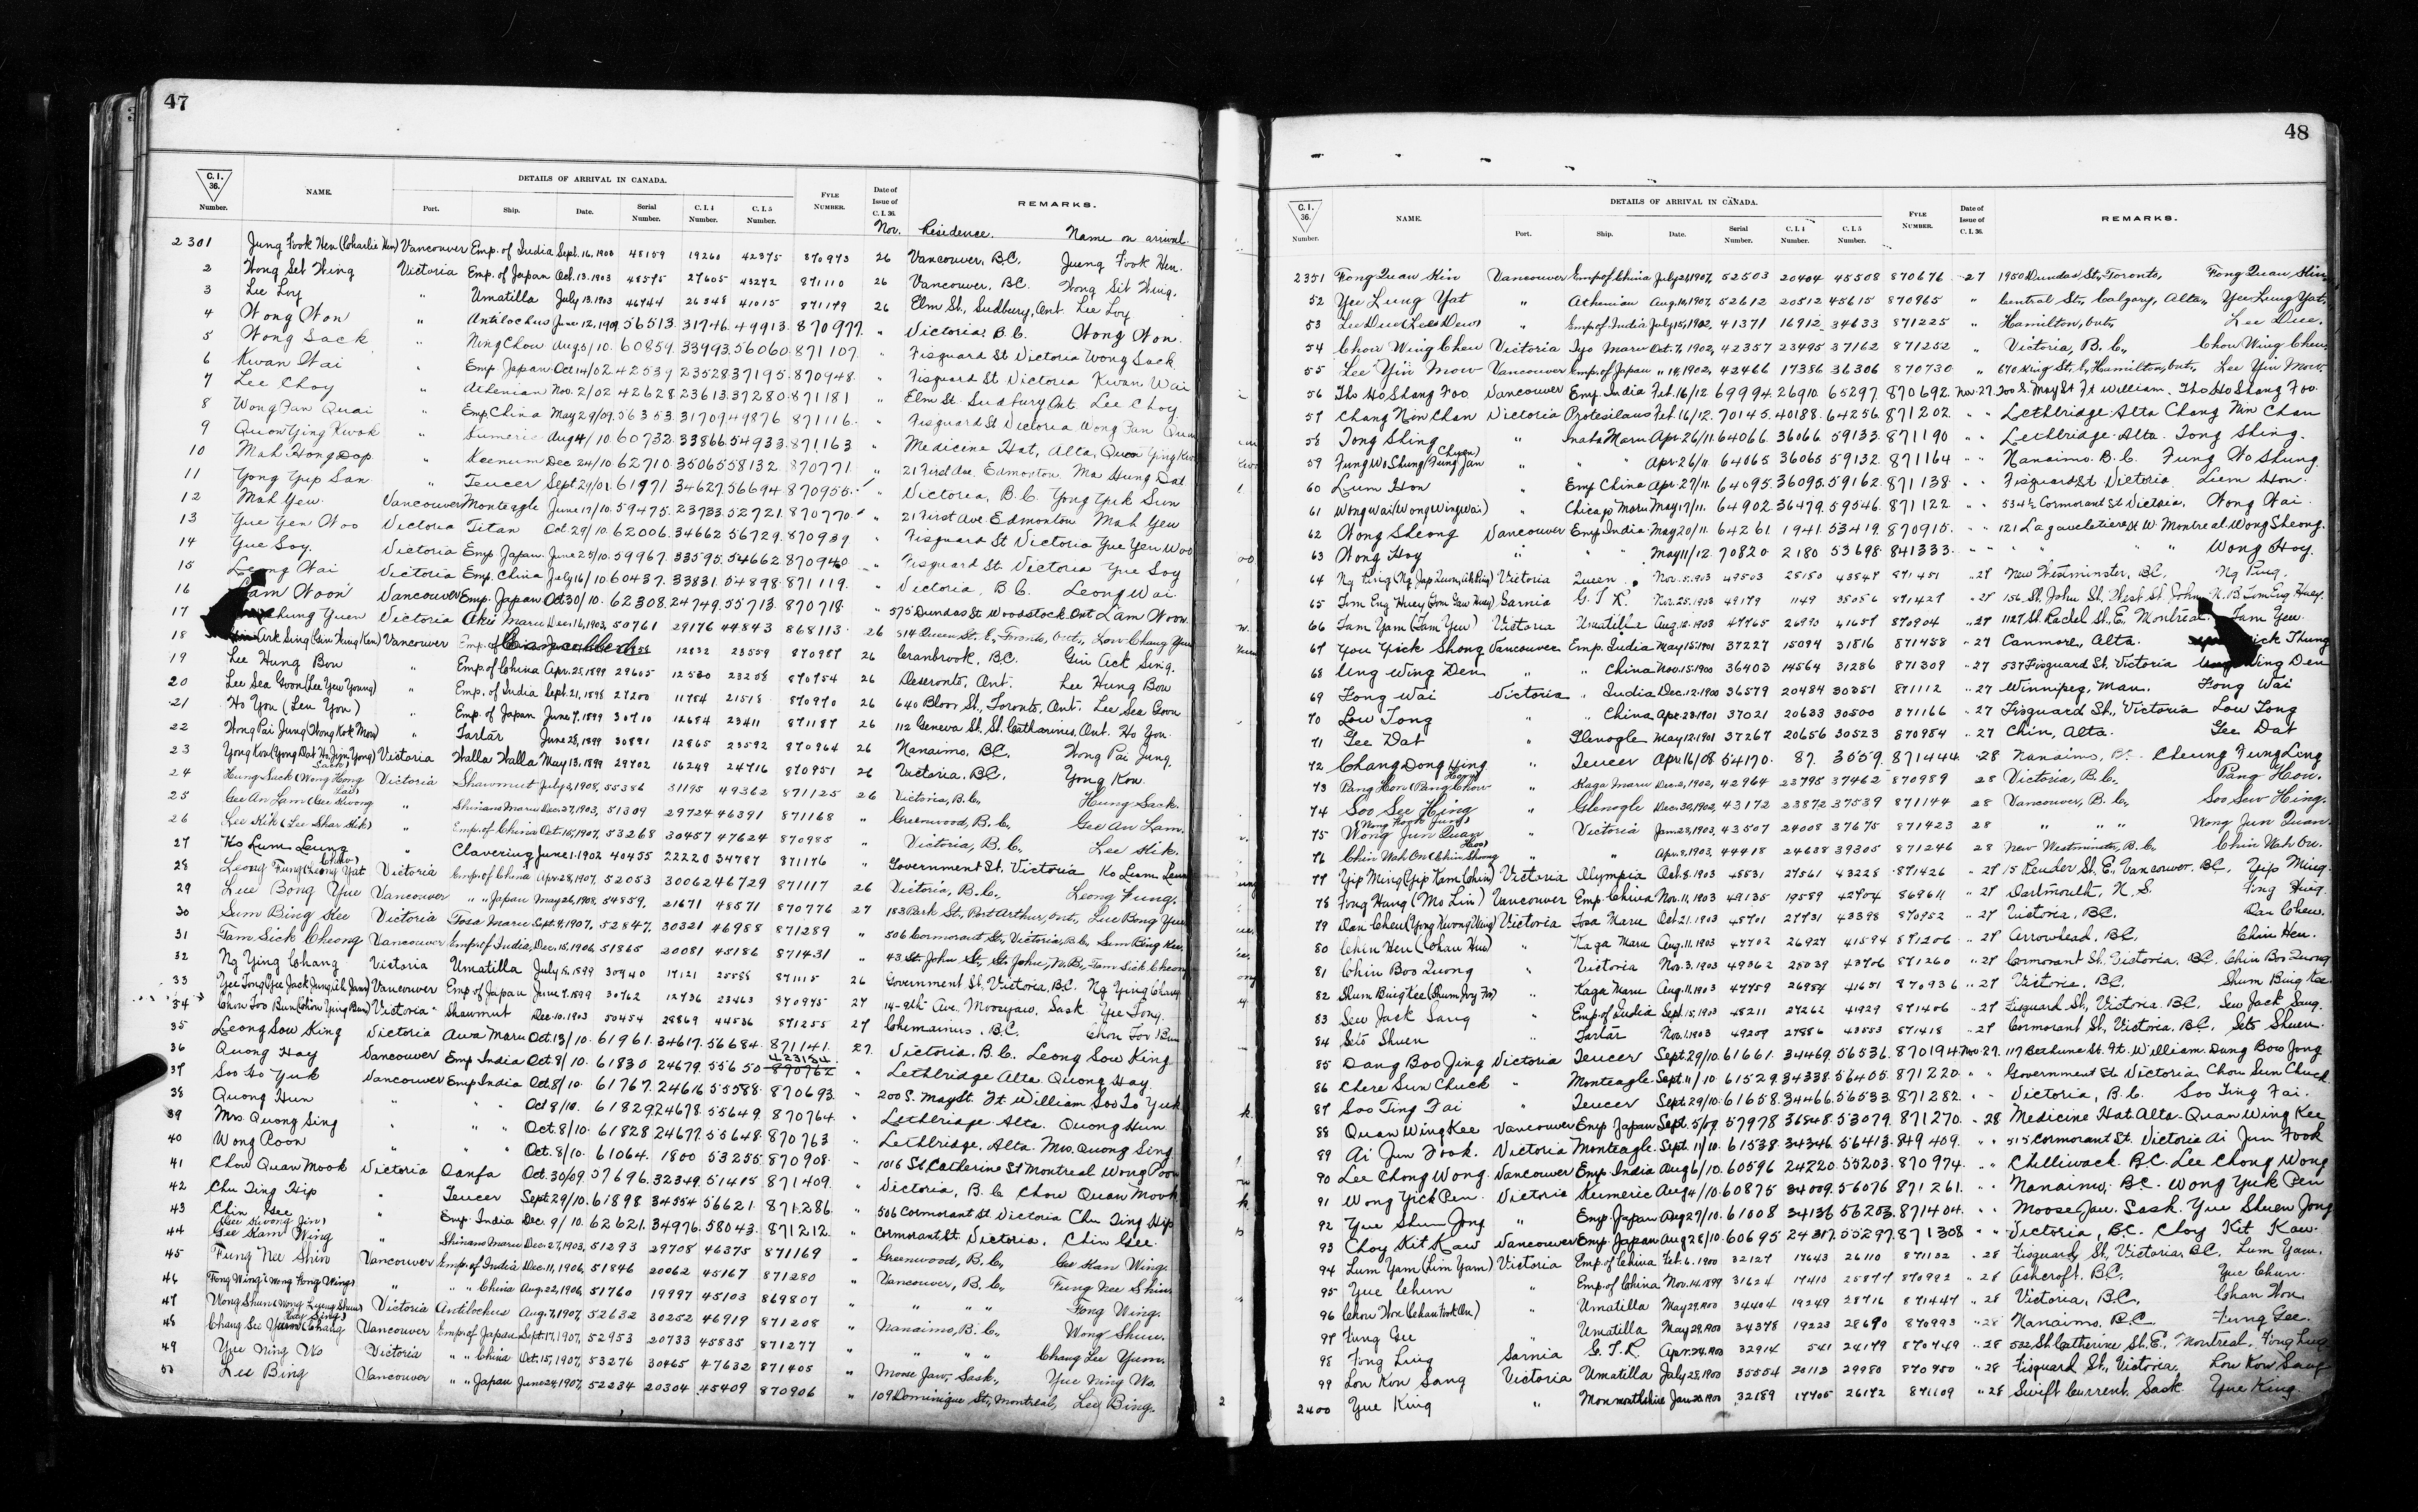 47
C.I. 36. Number.
NAME.
DETAILS OF ARRIVAL IN CANADA.
Port. Ship. Date. Serial Number. C.I.4 Number. C.I.5 Number.
FYLE NUMBER.
Date of Issue of C.I.36.
REMARKS.
Nov. Residence. Name on arrival.
2301 Jung Fook Hen (Charlie Hen) Vancouver Emp. of India Sept. 16, 1903 48159 19260 42375 870973 26 Vancouver, BC. Jueng Fook Hen.
2 Wong Set Wing Victoria Emp. of Japan Oct. 13. 1903 48595 27605 43272 871110 26 Vancouver, BC. Wong Sit Wing.
3 Lee Loy " Umatilla July 13. 1903 46744 26348 41015 871149 26 Elm St., Sudbury, Ont. Lee Loy
4 Wong Won " Antilochus June 12, 1909 56513. 31746. 49913. 870977. " Victoria. B.C. Wong Won.
5 Wong Sack " Ning Chow Aug 5/10. 60859. 33993. 56060. 871107. " Fisguard St Victoria Wong Sack
6 Kwan Wai " Emp Japan Oct 14/02 42539 23528 37195. 870948. " Fisguard St Victoria Kwan Wai
7 Lee Choy " Athenian Nov. 2/02 42628 23613. 37280. 871181 " Elm St. Sudbury Ont. Lee Choy
8 Wong Fan Quai " Emp China May 29/09. 56353. 31709. 49876 871116. " Fisguard St Victoria Wong Fan
9 Quon Ying Kwok " Sumeric Aug 4/10. 60732. 33866. 54933. 871163 " Medicine Hat, Alta, Quon Ying
10 Mah Hong Dop " Keenum Dec 24/10. 62710. 35065 58132. 870771 " 21 First Ave Edmonton Ma Hung Dat
11 Yong Yup San " Teucer Sept 29/01. 61971 34627. 56694 870955. " Victoria, B.C. Yong Yuk Sun
12 Mah Yew Vancouver Monteagle June 17/10. 59475. 23733. 52721. 870770. " 21 First Ave Edmonton Mah Yew
13 Yue Yen Woo Victoria Titan Oct. 29/10. 62006. 34662 56729. 870939 " Fisguard St Victoria Yue Yen Woo
14 Yue Soy. Victoria Emp Japan. June 25/10. 59967. 33595. 54662 870940 " Fisguard St. Victoria Yue Soy
15 Leong Wai Victoria Emp. China July 16/10 60437. 33831. 54898. 871119. " Victoria, B.C. Leong Wai
16 Lam Woon Vancouver Emp. Japan Oct 30/10. 62308. 24749. 55713. 870718. " 575 Dundas St Woodstock Ont Lam Woon.
17 Chung Yuen Victoria Aki Maru Dec. 16, 1903, 50761 29176 44843 868113 26 514 Queen St. E., Toronto, Ont., Low Chung Yuen
18 Ark Sing Vancouver Emp. of Cancelled 12832 23559 870987 26 Cranbrook, BC. Gin Act Sing.
19 Lee Hung Bow " Emp of China Apr. 25, 1899 29605 12580 23258 870754 26 Deseronto, Ont. Lee Hung Bow
20 Lee Sea Goon (Lee Yew Young) " Emp. of India Sept. 21, 1898 27200 11784 21518 870970 26 640 Bloor St., Toronto, Ont. Lee Sea Goon
21 Ho You (Leu You) " Emp. of Japan June 7. 1899 30710 12684 23411 871187 26 112 Geneva St. St. Catharines, Ont. Ho You.
22 Wong Pai Jung (Wong Kok Mow) " Tartar June 28, 1899 30891 12865 23592 870964 26 Nanaimo, BC. Wong Pai Jung.
23 Yong Kow Victoria Walla Walla May 13, 1899 29702 16249 24716 870951 26 Victoria, BC. Yong Kow.
24 Hung Sack (Wong Hong Sack) Victoria Shawmut July 3, 1908, 55386 31195 49362 871125 26 Victoria, B.C., Hung Sack.
25 Gee An Lam (Gee Kwong Lai) " Shinano Maru Dec. 27, 1903, 51309 29724 46391 871168 " Greenwood, B.C., Gee An Lam.
26 Lee Hik (Lee Shar Hik) " Emp. of China Oct. 15, 1907, 53268 30457 47624 870985 " Victoria, B.C., Lee Hik.
27 Ko Lum Leung " Clavering June 1. 1902 40455 22220 34787 871176 " Government St. Victoria Ko Leam Leun
28 Leong Fung (Leong Yat Chew) Victoria Emp. of China Apr. 28, 1907, 52053 30062 46729 871117 26 Victoria, B.C., Leong Fung.
29 Lue Bong Yue Vancouver " " Japan May 26, 1908, 54859, 21671 48571 870776 27 183 Park St., Port Arthur, Ont., Lue Bong Yue
30 Sum Bing Kee Victoria Tosa Maru Sept. 9, 1907, 52847, 30321 46988 871289 " 506 Cormorant St., Victoria, B.C. Sum Bing Kee,
31 Tam Sick Cheong Vancouver Emp. of India, Dec. 15, 1906, 51865 20081 45186 871431 " 43 St. John St., St. John, N.B., Tam Sick Cheong
32 Ng Ying Chang Victoria Umatilla July 18, 1899 30940 17121 25588 871115 26 Government St. Victoria, BC. Ng Ying Chang
33 Yee Tong Vancouver Emp of Japan June 7. 1899 30762 12736 23463 870975 27 14-9th Ave. Moosejaw, Sask Yee Tong.
34 Chow Foo Bun Victoria Shawmut Dec. 10. 1903 50454 28869 44536 871255 27 Chemainus, BC. Chow Foo Bun
35 Leong Sow King Victoria Awa Maru Oct 13/10. 61961. 34617. 56684. 871141. 27. Victoria. B.C. Leong Sow King
36 Quong Hay Vancouver Emp India Oct. 8/10. 61830 24679. 55650 870762 " Lethbridge Alta. Quong Hay.
37 Soo Yuk Vancouver Emp India Oct. 8/10. 61767. 24616 55588. 870693. " 200 S. May St. Ft William Soo Yuk
38 Quong Hun " " Oct 8/10. 61829 24678. 55649. 870764. " Lethbridge Alta. Quong Hun
39 Mrs. Quong Sing " " " Oct. 8/10. 61828 24677. 55648. 870763 " Lethbridge, Alta. Mrs. Quong Sing
40 Wong Poon " " Oct. 8/10. 61064. 1800 53255. 870908. " 1016 St Catherine St Montreal Wong Poon
41 Chow Quan Mook Victoria Oanfa Oct. 30/09. 57696. 32349. 51415 871409. " Victoria, B.C. Chow Quan Mook
42 Chu Ting Hip " Teucer Sept. 29/10. 61898 34554 56621. 871286. " 506 Cormorant St Victoria Chu Ting Hip
43 Chin Gee " Emp. India Dec. 9/10. 62621. 34976. 58043. 871212. " Cormorant St. Victoria. Chin Gee.
44 Gee Kam Wing (Gee Kwong Jin) " Shinano Maru Dec. 27, 1903, 51293 29708 46375 871169 " Greenwood, B.C., Gee Kam Wing.
45 Fung Nee Shin Vancouver Emp. of India Dec. 11, 1906, 51846 20062 45167 871280 " Vancouver, B.C., Fung Nee Shin.
46 Fong Wing (Wong Fong Wing) " " " China Aug. 22, 1906, 51760 19997 45103 869807 " " " " Fong Wing.
47 Wong Shun Victoria Antilochus Aug. 7, 1907, 52632 30252 46919 871208 " Nanaimo, B.C. Wong Shun.
48 Chang Lee Yum Vancouver Emp. of Japan Sept. 17, 1907, 52953 20733 45835 871277 " " " " Chang Lee Yum.
49 Yue Ning Wo Victoria " " China Oct. 15, 1907, 53276 30465 47632 871405 " Moose Jaw, Sask., Yue Ning Wo.
50 Lee Bing Vancouver " " Japan June 24, 1907, 52234 20304 45409 870906 " 109 Dominique St., Montreal, Lee Bing.
48
C.I. 36. Number.
NAME.
DETAILS OF ARRIVAL IN CANADA.
Port. Ship. Date. Serial Number. C.I.4 Number. C.I.5 Number.
FYLE NUMBER.
Date of Issue of C.I.36.
REMARKS.
2351 Fong Quan Hin Vancouver Emp of China July 21, 1907, 52503 20404 45508 870676 27 1950 Dundas St., Toronto, Fong Quan Hin
52 Yee Lung Yat " Athenian Aug. 10, 1907, 52612 20512 45615 870965 " Central St., Calgary, Alta., Yee Lung Yat.
53 Lee Due (Lee Dew) " Emp. of India July 15, 1902, 41371 16912 34633 871225 " Hamilton, Ont., Lee Due.
54 Chow Wing Chew Victoria Iyo Maru Oct. 7, 1902, 42357 23495 37162 871252 " Victoria, B.C., Chow Wing Chew.
55 Lee Yin Mow Vancouver Emp. of Japan " 14, 1902, 42466 17386 36306 870730 " 670 King St. E., Hamilton, Ont., Lee Yin Mow.
56 Tho Ho Shang Foo Vancouver Emp. India Feb. 16/12 69994. 26910. 65297. 870692. Nov 27. 200 S. May St Ft William. Tho Ho Shang Foo.
57 Chang Nin Chan Victoria Protesilaus Feb. 16/12. 70145. 40188. 64256 871202 " " Lethbridge Alta Chang Nin Chan
58 Tong Shing " Inaba Maru Apr. 26/11. 64066. 36066 59133. 871190 " " Lethbridge Alta. Tong Shing.
59 Fung Wo Shung (Fung Jan Chuen) " " " Apr. 26/11. 64065. 36065 59132. 871164 " " Nanaimo. B.C. Fung Wo Shung
60 Lum Hon " Emp China Apr. 27/11. 64095. 36095. 59162. 871138. " " Fisguard St Victoria Lum Hon.
61 Wong Wai (Wong Wing Wai) " Chicago Maru May 17/11. 64902 36479. 59546. 871122 " " 534½ Cormorant St Victoria. Wong Wai.
62 Wong Sheong Vancouver Emp India May 20/11. 64261. 1941. 53419. 870915. " " 121 Lagauchetiere St W. Montreal. Wong Sheong.
63 Wong Hoy " " " May 11/12. 70820 2180 53698. 841333. " " " " " Wong Hoy.
64 Ng Ping Victoria Queen Nov. 5. 1903 49503 28180 43847 871451 " 27 New Westminster, BC. Ng Ping.
65 Tom Eng Huey Sarnia G.T.R. Nov. 25. 1903 49179 1149 35056 871427 " 27 156 St. John St. West St. John, N.B. Tom Eng Huey.
66 Fam Yam (Fam Yeu) Victoria Umatilla Aug. 12. 1903 47765 26990 41657 870904 " 27 1127 St. Rachel St. E. Montreal. Fam Yeu.
67 You Yick Shong Vancouver Emp. India May 15. 1901 37227 15094 31816 871458 " 27 Canmore, Alta. Yick Thung
68 Ung Wing Den " " China Nov. 15. 1900 36403 14564 31286 871309 " 27 537 Fisguard St., Victoria Ung Wing Den
69 Fong Wai Victoria " India Dec. 12. 1900 36579 20484 30351 871112 " 27 Winnipeg, Man. Fong Wai
70 Low Tong " " China Apr. 23. 1901 37021 20633 30500 871166 " 27 Fisguard St., Victoria Low Tong
71 Gee Dat " Glenogle May 12. 1901 37267 20656 30523 870954 " 27 Chin, Alta. Gee Dat
72 Chang Dong Hing " Teucer Apr. 16/08 54170. 87. 3659. 871444. 28 Nanaimo, B.C. Cheung Fung Ling
73 Pang Hon (Pang Chow Hong) " Kaga Maru Dec. 2, 1902, 42964 23795 37462 870989 28 Victoria, B.C., Pang Hon.
74 Soo See Hing " Glenogle Dec. 30, 1902, 43172 23872 37539 871144 28 Vancouver, B.C., Soo Sew Hing.
75 Wong Jun Quan (Wong Kook Jung) " Victoria Jan. 23, 1903, 43507 24008 37675 871423 28 " " " Wong Jun Quan.
76 Chin Wah On " " Apr. 8, 1903, 44418 24638 39305 871246 28 New Westminster, B.C. Chin Wah On.
77 Yip Ming (Yip Kam Chin) Victoria Olympia Oct. 8. 1903 48531 27561 43228 871426 " 27 15 Pender St. E, Vancouver. BC. Yip Ming.
78 Fong Hang (Mo Lin) Vancouver Emp. China Nov. 11, 1903 49135 19589 42704 869611 " 27 Dartmouth, N.S. Fong Hing
79 Dan Cheu Victoria Tosa Maru Oct. 21. 1903 48701 27731 43398 870952 " 27 Victoria, BC. Dan Chew.
80 Chin Hen (Chan Hen) " Kaga Maru Aug. 11. 1903 47702 26927 41594 871206 " 27 Arrowhead, BC. Chin Hen.
81 Chin Boo Quong " Victoria Nov. 3. 1903 49362 28039 43706 871260 " 27 Cormorant St. Victoria. BC. Chin Boo Quong
82 Shum Bing Kee " Kaga Maru Aug. 11, 1903 47759 26984 41651 870936 " 27 Victoria, BC. Shum Bing Kee
83 Sew Jack Sang " Emp of India Sept. 15, 1903 48211 27262 41929 871406 " 27 Fisguard St., Victoria. BC. Sew Jack Sang.
84 Seto Shuen " Tartar Nov. 1. 1903 49209 27886 43553 871418 " 27 Cormorant St., Victoria, BC. Seto Shuen.
85 Dang Boo Jing Victoria Teucer Sept. 29/10. 61661. 34469. 56536. 870194. Nov. 27. 117 Bethune St. Ft. William. Dang Boo Jong
86 Chere Sun Chuck " Monteagle Sept. 11/10. 61529. 34338. 56405. 871220. " " Government St. Victoria Chou Sun Chuck
87 Soo Ting Fai " Teucer Sept. 29/10. 61658. 34466. 56533. 871282. " " Victoria, B.C. Soo Ting Fai.
88 Quan Wing Kee Vancouver Emp Japan Sept. 5/09. 57978 31848. 53079. 871270. " 28 Medicine Hat Alta. Quan Wing Kee
89 Ai Jun Fook. Victoria Monteagle Sept. 11/10. 61538. 34346. 56413. 849409. " " 515 Cormorant St. Victoria Ai Jun Fook
90 Lee Chong Wong. Vancouver Emp. India Aug 6/10. 60596 24220. 55203. 870974. " " Chilliwack. B.C. Lee Chong Wong
91 Wong Yick Pen. Victoria Sumeric Aug 4/10. 60875 34009. 56076 871261. " " Nanaimo, BC. Wong Yuk Pen
92 Yue Shum Jong " Emp Japan Aug 27/10. 61008 34136 56203. 871404. " " Moose Jaw. Sask. Yue Shuen Jong
93 Choy Kit Kaw Vancouver Emp. Japan Aug 28/10. 60695 24317. 55297. 871308 " " Victoria, B.C. Choy Kit Kaw
94 Lum Yam (Lim Yam) Victoria Emp. of China Feb. 6. 1900 32127 17643 26110 871132 " 28 Fisguard St., Victoria, BC. Lum Yam.
95 Yue Chun " Emp. of China Nov. 14. 1899 31624 17410 25877 870992 " 28 Ashcroft. BC. Yue Chun.
96 Chow Won " Umatilla May 29, 1900 34404 19249 28716 871447 " 28 Victoria, B.C. Chan Won
97 Fung Gee " Umatilla May 29, 1900 34378 19223 28690 870993 " 28 Nanaimo, B.C. Fung Gee.
98 Fong Ling Sarnia G.T.R. Apr. 24. 1900 32914 541 24179 870749 " 28 522 St Catherine St. E., Montreal. Fong Ling
99 Lou Kon Sang Victoria Umatilla July 28, 1900 35554 20113 29980 870950 " 28 Fisguard St., Victoria. Lou Kon Sang
2400 Yue King " Monmouthshire Jan. 20. 1900 32189 17705 26172 871109 " 28 Swift Current, Sask. Yue King.